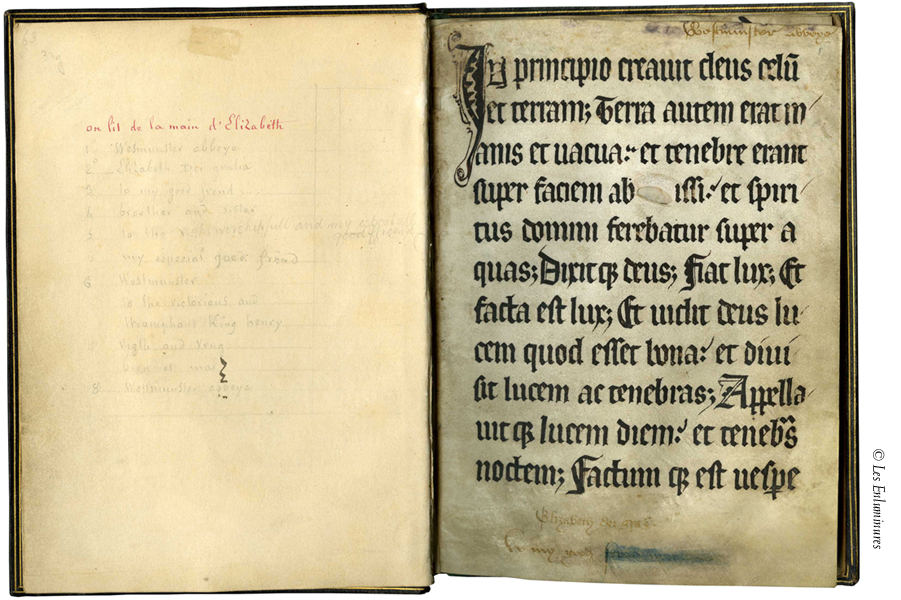 on lit de la main d'Elizabeth
1 Westminster abbeye
2° Elizabeth Dei gratia
3 to my good frend
4 broether and sister
5 to the
my especial good frend
6 Westminster
to the victorious and
triumphant King henry
8 Westminster abbeye
Westminster abbeye
In principio creauit deus celū
et terram; Terra autem erat in/
anis et uacua: et tenebre erant
super faciem ab issi: et spiri
tus domini ferebatur super a
quas; Dixit qꝫ deus; Fiat lux; Et
facta est lux; Et uidit deus lu/
cem quod esset bona: et diui
sit lucem ac tenebras; Appella/
uit qꝫ lucem diem: et tenebās
noctem; Factum qꝫ est uespe
Elizabeth dei
to my
© Les Enluminures